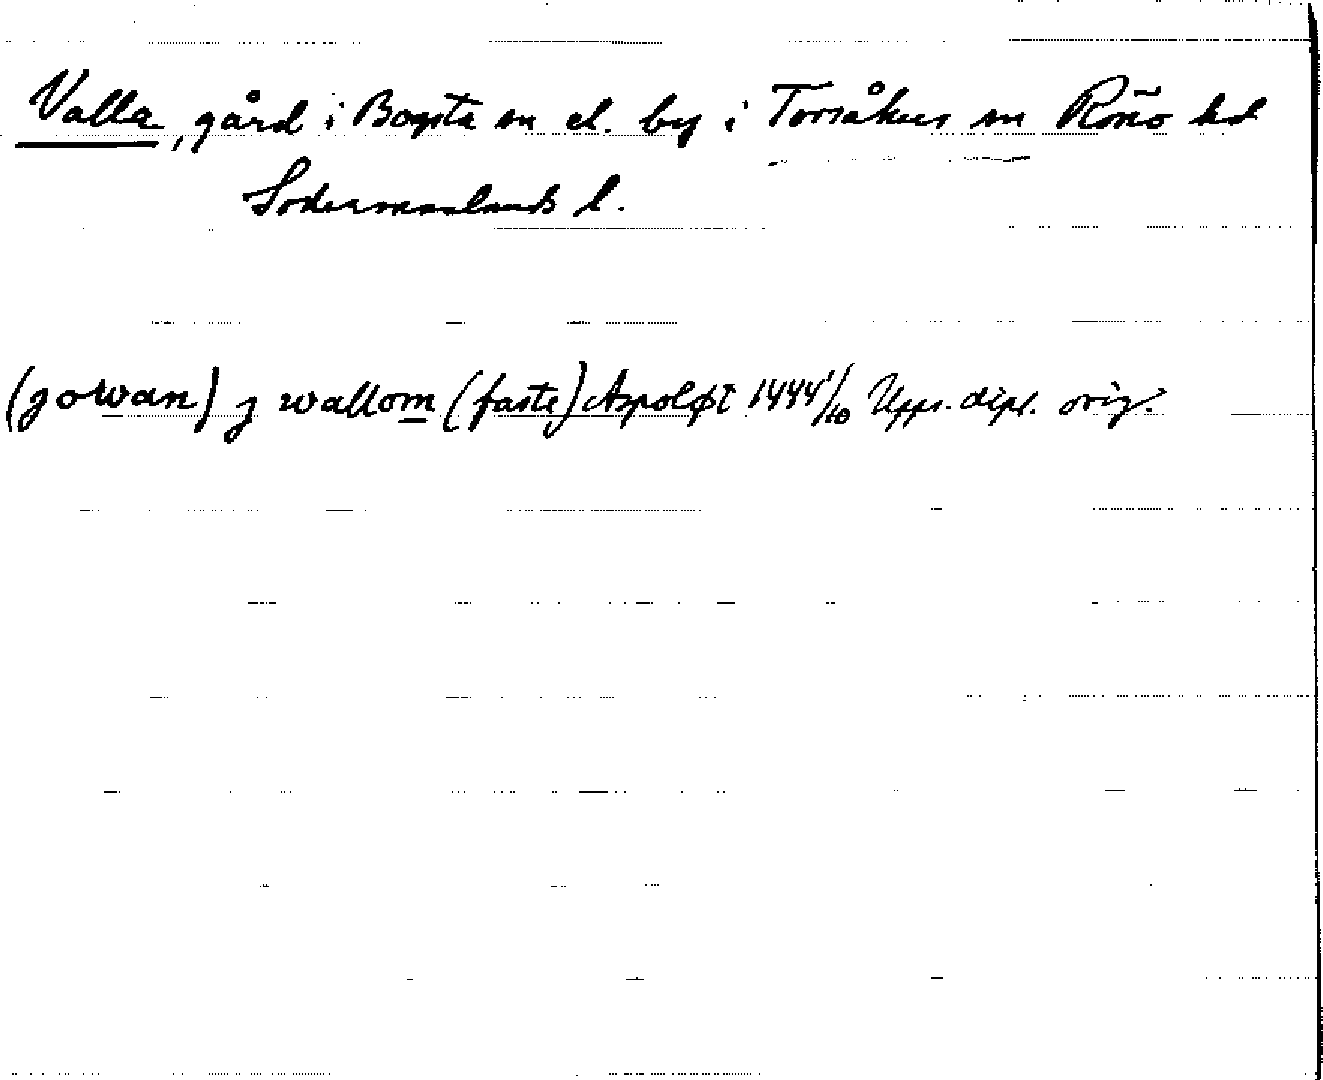 Valla, gård i Bogsta sn el. by i Torsåkers sn Rönö hd
Södermanlands l.
(jowan) j wallom (faste) Aspoløt 1444 1/10 Upps. dipl. orig.